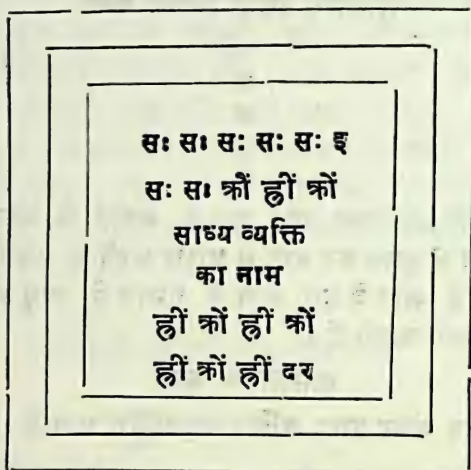 सः सः सः सः सः इ
सः सः क्रौं ह्रीं क्रों
साध्य व्यक्ति
का नाम
ह्रीं क्रों ह्रीं क्रों
ह्रीं क्रों ह्रीं दय